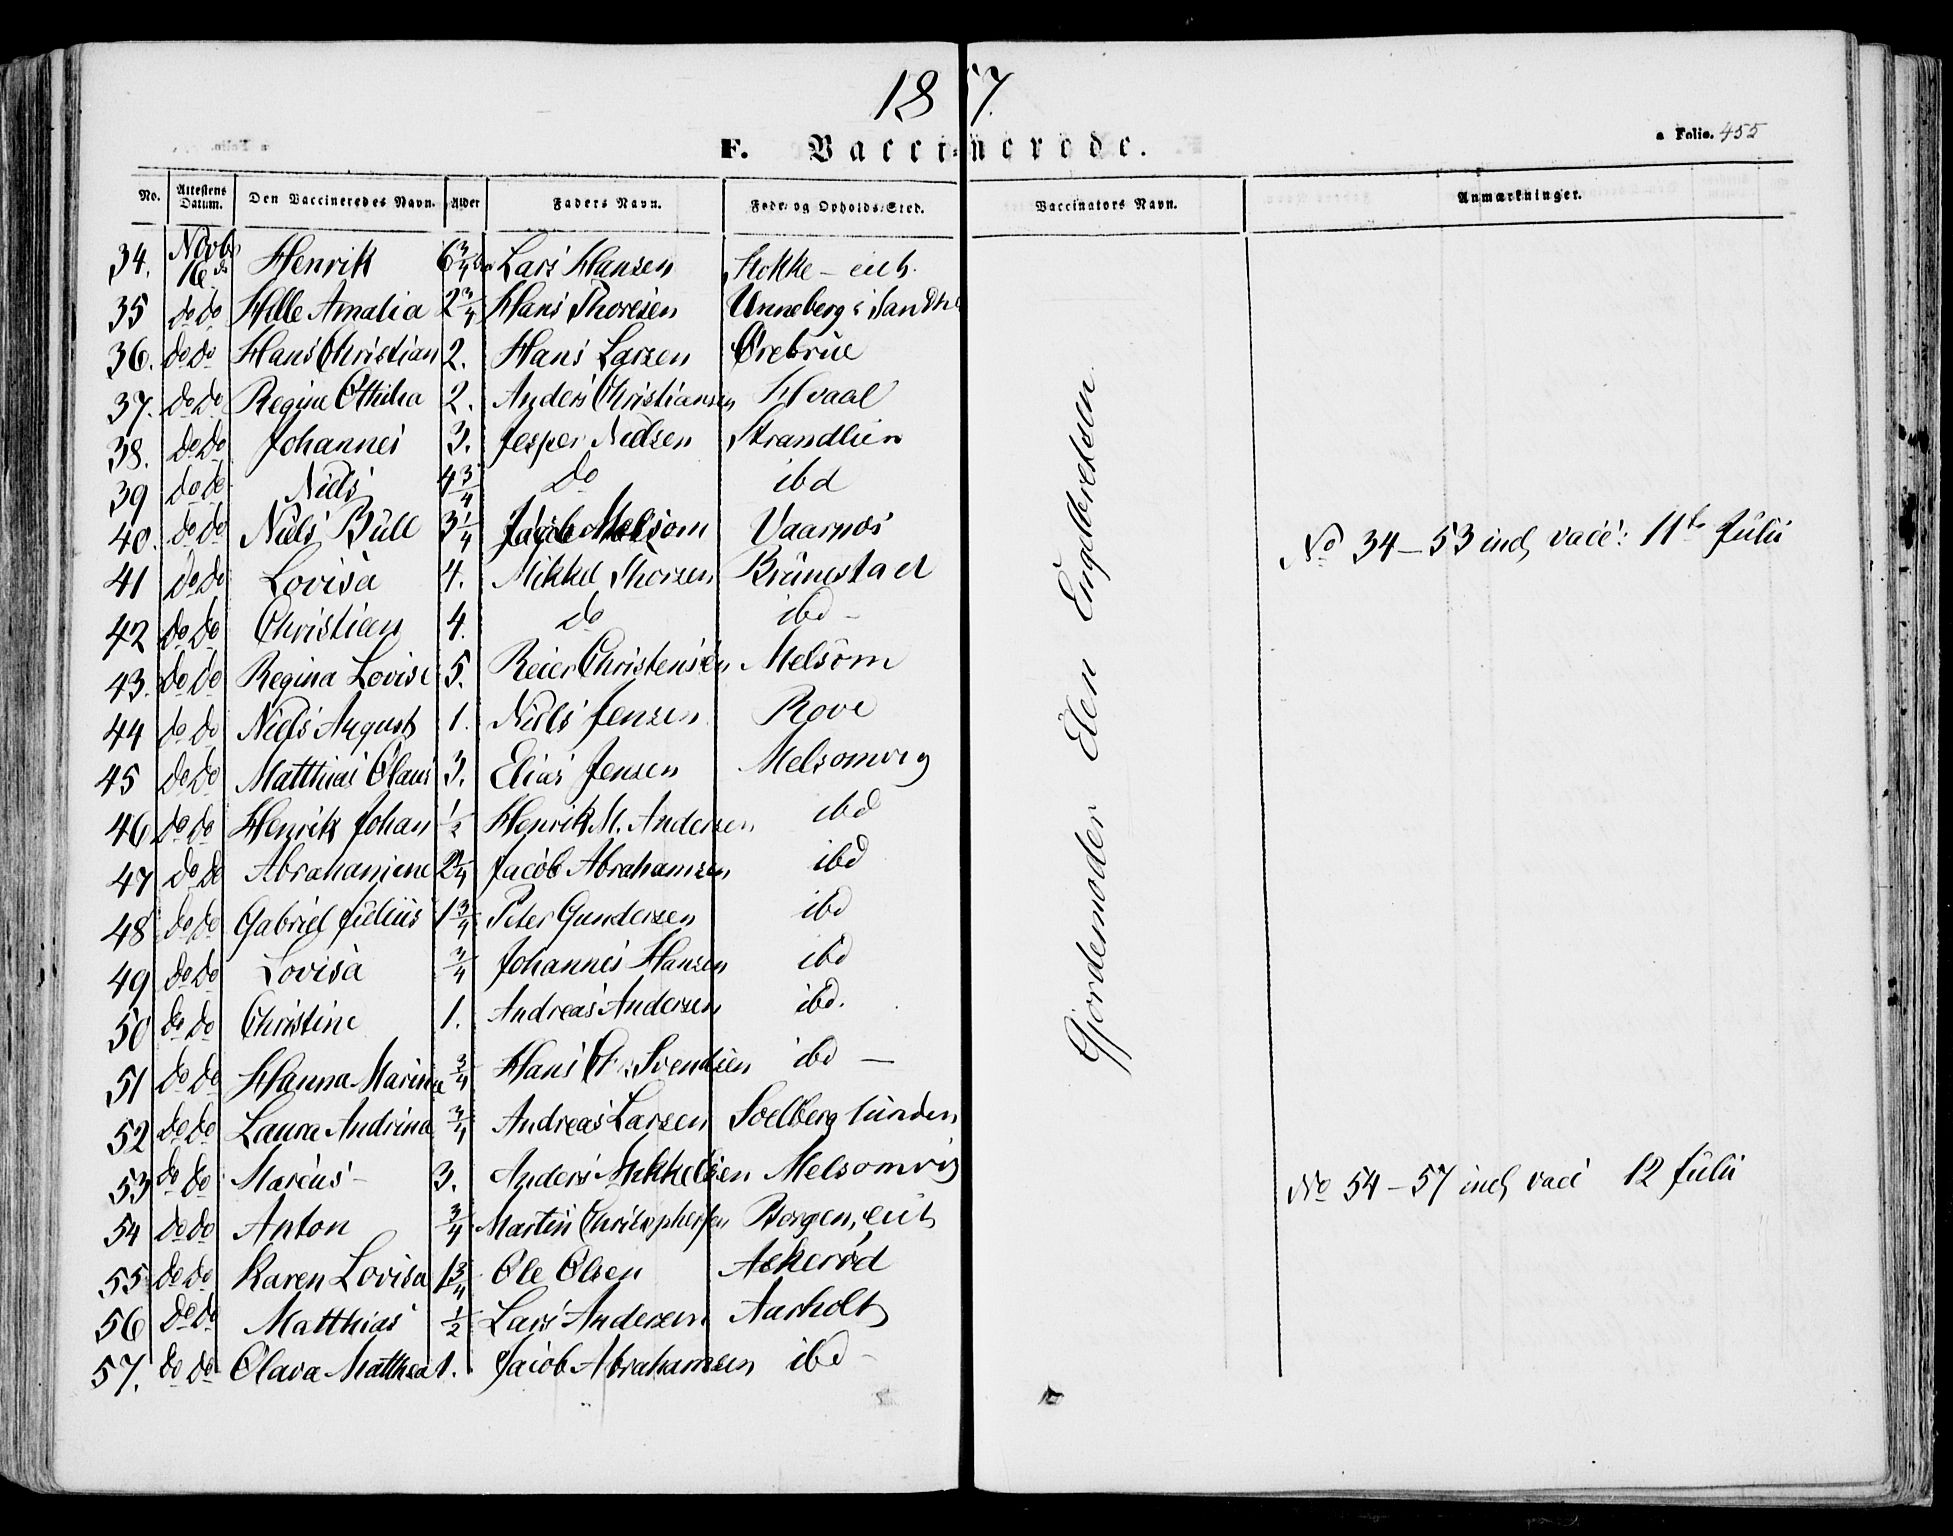 1857.
F. Vaccinerede.
a Folio. 455
No. Attestens Datum. Den Vaccineredes Navn. Alder Faders Navn. Føde- og Opholds-Sted. Vaccinators Navn. Anmærkninger.
34. Novbr 16de Henrik 6 3/4 Lars Hansen Stokke
35 do do Helle Amalia 2 3/4 Hans Thoresen Unneberg i Sandh
36. do do Hans Christian 2. Hans Larsen Ørebrue
37. do do Regine Othilia 2. Anders Christiansen Hvaal
38. do do Johannes 3. Jesper Nielsen Strandlien
39 do do Niels 4 3/4 do ibd
40. do do Niels Bull 3 1/4 Jacob Melsom Vaarnes
41 do do Lovisa 4. Mikkel Thorsen Brunestad
42 do do Christian 4. do ibd -
43. do do Regina Lovise 5. Reier Christensen Melsom
44 do do Niels August 1. Niels Jensen Rove
45 do do Matthias Olaus 3. Elias Jensen Melsomvig
46 do do Henrik Johan 1/2 Henrik M. Andersen ibd
47 do do Abrahamine 2 1/4 Jacob Abrahamsen ibd
48 do do Gabriel Julius 1 3/4 Peter Gundersen ibd
49 do do Lovisa 3/4 Johannes Hansen ibd
50 do do Christine 1. Andreas Andersen ibd.
51 do do Hanna Marina 3/4 Hans Svendsen ibd -
52 do do Laura Andrina 3/4 Andreas Larsen Soelberg
53 do do Marcus - 3. Anders Mikkelsen Melsomvig
54 do do Anton 3/4 Martin Christophersen Borgen,
55 do do Karen Lovisa 1 3/4 Ole Olsen Askerød
56 do do Matthias 1/2 Lars Andersen Aarholt
57. do do Olava Matthea 1. Jacob Abrahamsen ibd -
Gjordemoder Elen Engelbretsen
No 34 - 53 incl vacc: 11te Julii
No 54 - 57 incl vacc 12 Julii